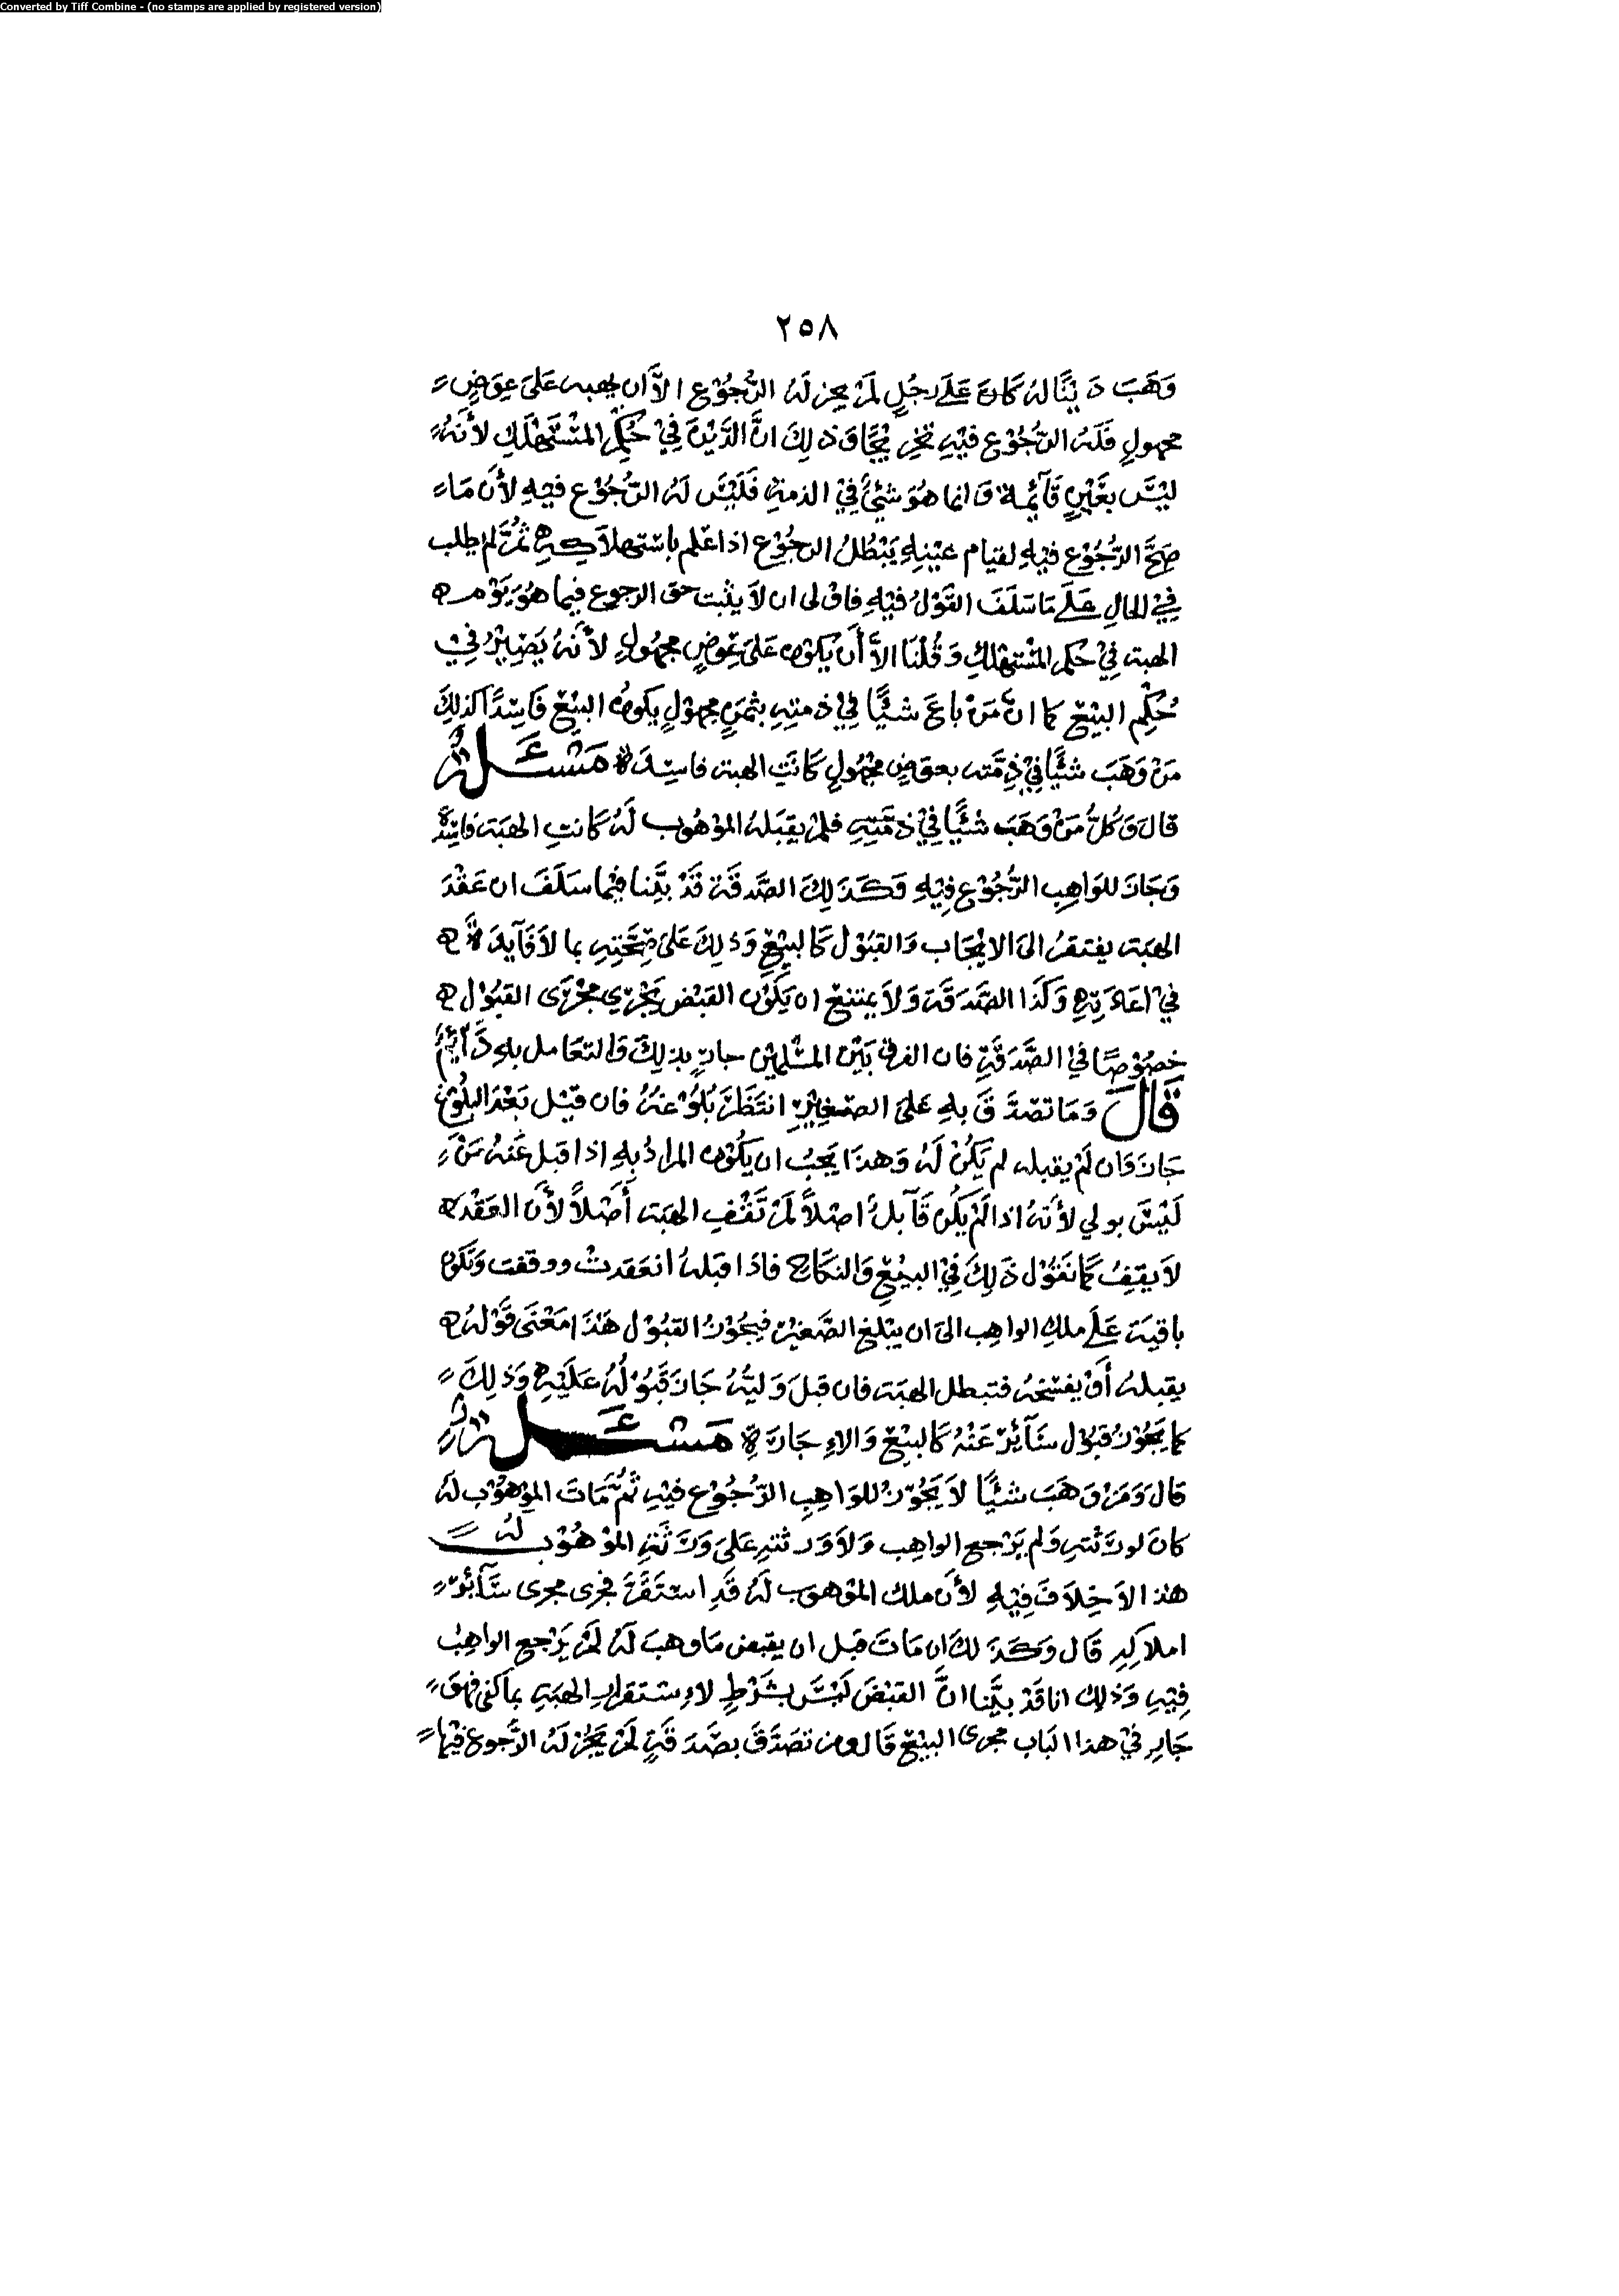 Converted by Tiff Combine - (no stamps are applied by registered version)
٢٥٨
وَهَبَ دَيْنًا لهُ كَانَ عَلَى رجُلٍ لَمْ يجز لَهُ الرُّجُوْع الاَّ ان يهبه عَلىَ عِوَضٍ
مجهولٍ فَلَهُ الرُّجُوْع فيْهِ وَذلِكَ انَّ الدَّيْنَ فِيْ حُكْمِ المسْتَهْلَكِ لأنَهُ
ليْسَ بعَيْنٍ قَآئِمة وَانما هُوَ شيْئٌ فِيْ الذمةِ فَلَيْسَ لَهُ الرُّجُوْع فيهِ لأن مَا
صَحَّ الرُّجُوْع فيْهِ لقيام عَيْنِهِ يَبْطُلُ الرجُوْع اذا عَلم باسْتهلاَكِهِ ثمَّ لم يطلب
فِيْ الحالِ عَلَى مَا سَلَفَ القَوْلُ فيْهِ فاوْلى ان لاَ يثبت حق الرجوع فيما هُوَ يَوْم
الهبة فِيْ حُكم المسْتهْلكِ وَقُلْنَا الاَّ أن يَكوْن عَلىَ عِوضٍ مجهُولٍ لأنَهُ يَصِيْرُ فِي
حُكْم البيْع كما انَّ مَنْ باعَ شيْئًا فِيْ ذمتِهِ بثمَنٍ مجهوْلٍ يكونُ البيْع فَاسِدًا كذلِكَ
مَنْ وَهَبَ شيْئًا فِيْ ذِمَّته بعوَضٍ مجْهُولٍ كَانَتِ الهبة فاسِدَة مَسْئَلَةٌ
قالَ وَكُلُّ مَنْ وَهَبَ شيْئًا فِيْ ذمَّتِهِ فلمْ يقبَلهُ الموْهُوب لَهُ كَانتِ الهبَة فاسِدَةً
وَجَازَ للوَاهِبِ الرُّجُوْع فِيْهِ وَكَذَلِكَ الصَّدقَة قَدْ بَيَّنا فيْما سَلَفَ ان عَقْدَ
الهبَة يفتقرُ الىَ الايْجَاب وَالقبُوْل كَالبيْعِ وَذلِكَ عَلىَ صِحَّتِهِ بما لاَ فَآيدَةَ
فِيْ اعَادَتِهِ وَكَذَا الصَّدَقَة وَلاَ يمتنع ان يَكوْن القبْض يَجْرِي مَجْرَى القبُوْل
خصُوْصًا فِيْ الصَّدَقَةِ فان العرف بَيْنَ المسْلِميْنَ جارٍ بذلِكَ وَالتعَامل بهِ دَآئِمٌ
قَالَ وَمَا تصَدَّقَ بهِ عَلىَ الصَّغِيْرِ انتَظَرَ بُلُوْغهُ فان قبْل بَعْدَ البلُوْغ
جَازَ وَان لَمْ يقبله لم يَكُنْ لَهُ وَهذَا يَجبُ ان يكُوْن المرادُ بهِ اذا قبل عَنهُ مَنْ
لَيْسَ بولي لأنهُ اذا لَمْ يَكُن قَآبلٌ اصْلاً لَمْ تَقفِ الهبَة أصْلاً لأن العَقْدَ
لاَ يقِفُ كَمَا نَقُوْل ذَلِكَ فِيْ البيْعِ وَالنكَاحِ فاذَا قبَلهُ انعَقَدتْ ووقفت وَتَكوْن
باقيَة عَلَى ملكِ الواهِب الىَ ان يبْلغ الصَّغيْر فيَجوْزُ القبُوْل هَذَا مَعْنَى قَوْلهُ
يقبلهُ أوْ يفسْخهُ فتبطل الهبَة فان قبلَ وَليُّهُ جَازَ قَبُوْلُهُ عَلَيْهِ وَذلِكَ
كما يَجُوْزُ قبُوْل سَآئِرَ عَنْهُ كَالبيْعِ وَالاءِجَارَةِ مَسْئَلَةٌ
قالَ وَمَنْ وَهَبَ شيْئًا لاَ يَجُوْزُ للوَاهِبِ الرُّجُوْع فيْهِ ثمَّ مَاتَ الموْهُوْب لَهُ
كانَ لورَثتهِ وَلم يَرْجع الواهِب وَلاَ وَرثته عَلىَ وَرَثَةِ الموْهُوْب لَهُ
هذا لاَ خِلاَفَ فِيْهِ لأن ملك الموْهوب لَهُ قَدِ استَقَرَّ فجرى مجرى سَآئِرِ
املاكِهِ قَالَ وَكَذَلكَ ان مَاتَ قبل ان يقبض مَا وهبَ لَهُ لَمْ يَرْجعِ الواهِبُ
فِيْهِ وَذلِك انا قَدْ بيَّنا انَّ القبْضَ لَيْسَ بشَرْطٍ لاءِسْتقرارِ الهبَةِ بما كفى فهوَ
جَارٍ فِيْ هذا البَاب مجرى البيْع قَالَ ومن تصَدَّقَ بصَدَقَةٍ لَمْ يَجُز لَهُ الرَّجوع فيْها